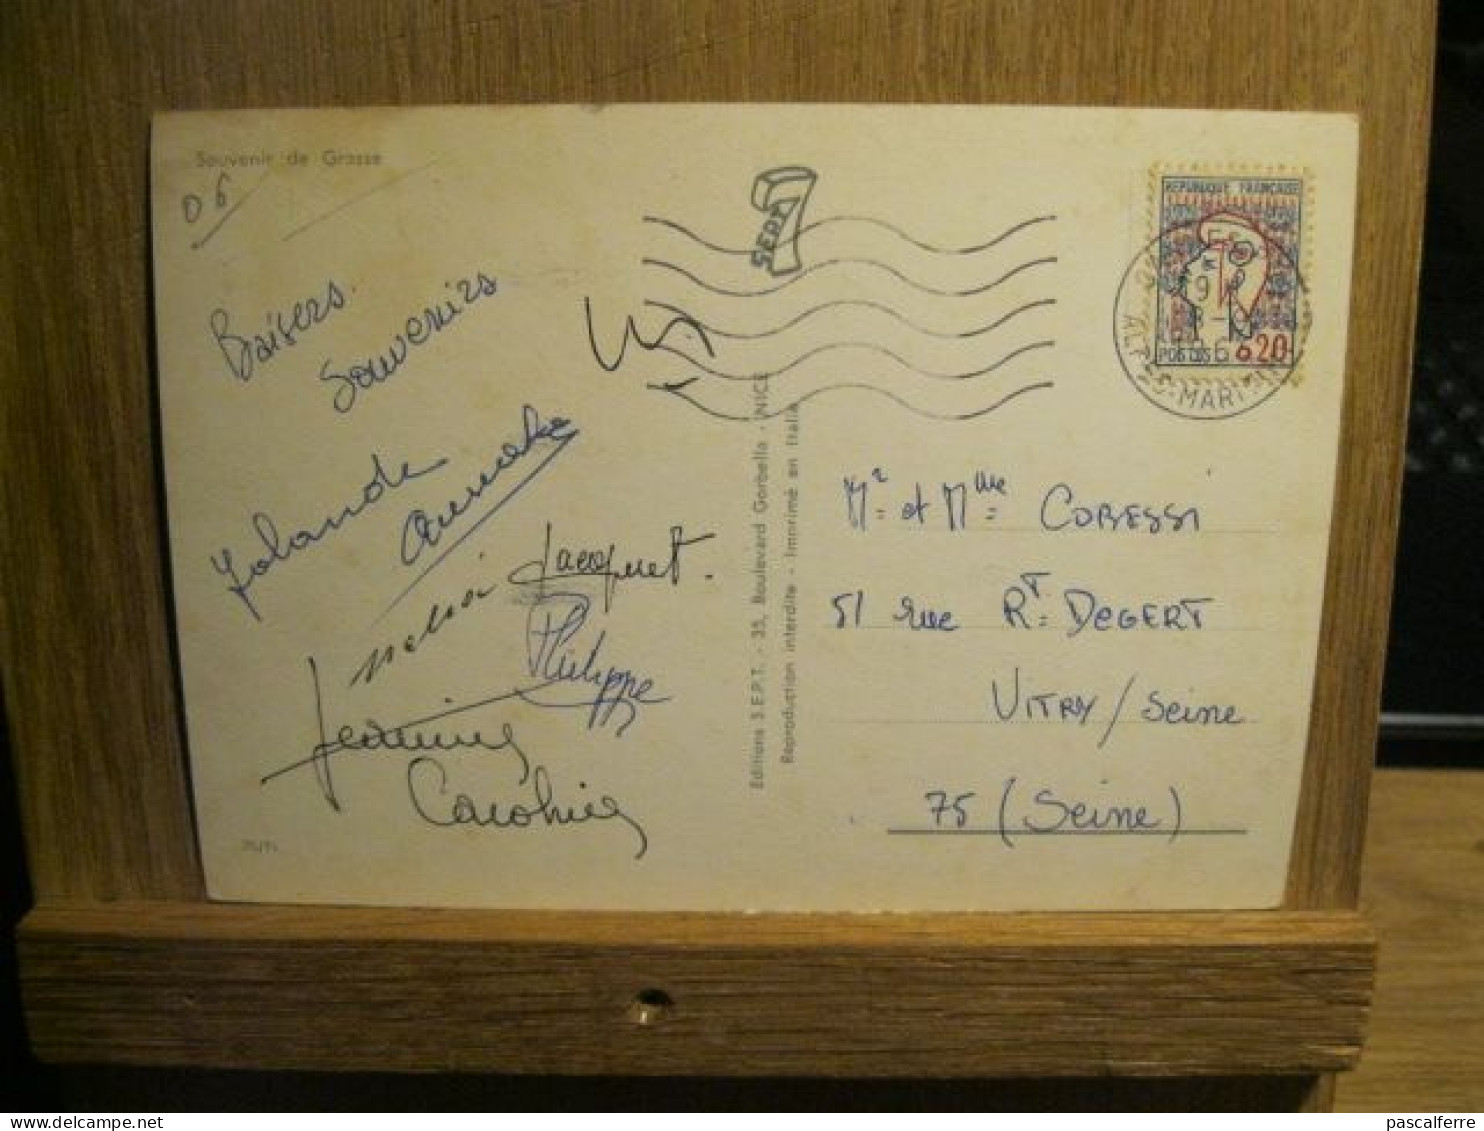 Souvenir de Grasse
06
Baisers
Souvenirs
Yolande
Jacquet.
Philippe
Jeannine
SEPT
Editions S.E.P.T. - 35, Boulevard Gorbella - NICE
Reproduction interdite - Imprimé en Italie
REPUBLIQUE FRANÇAISE
POSTES 0,20
ALPES-MARITIMES
Mr et Mme COBESSI
51 rue RT DEGERT
VITRY / Seine
75 (Seine)
pascalferre